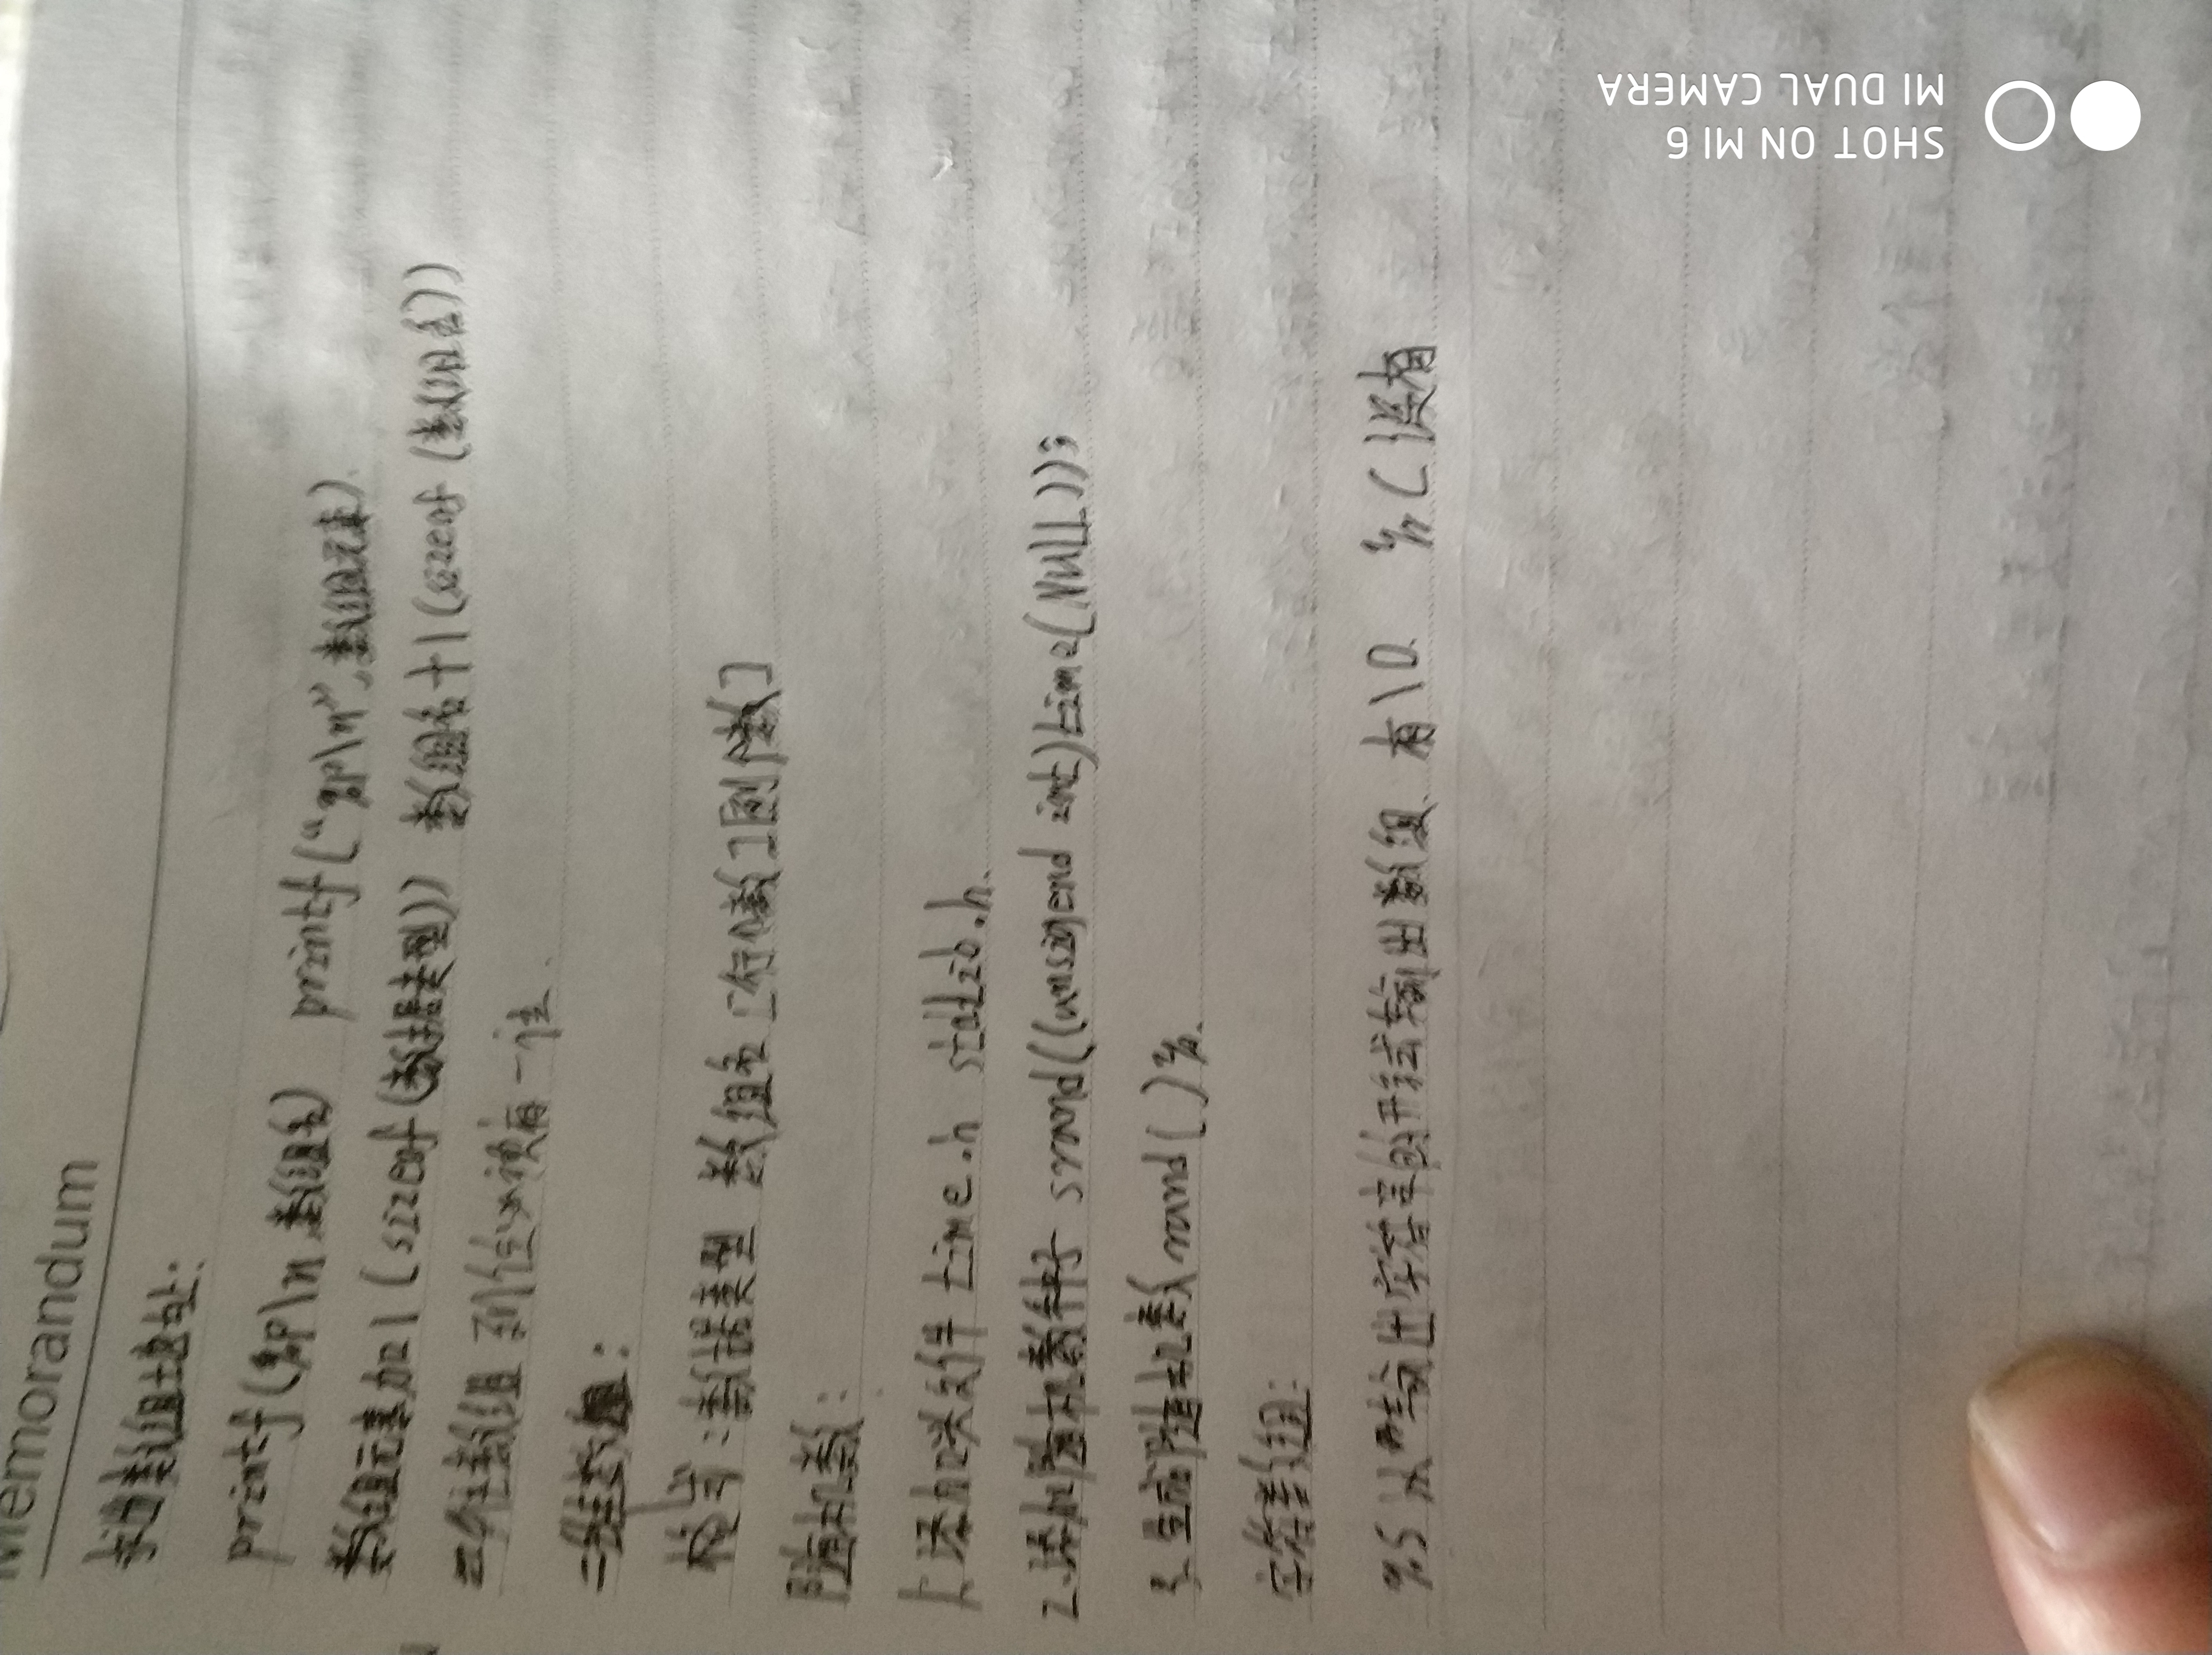 Memorandum
求得数组地址:
printf(%p\n 数组名) printf("%p\n",数组元素).
数组元素加1(sizeof(数据类型)) 数组名+1(sizeof(数组名))
二维数组 列任必须有一注.
二维数组:
格式:数据类型 数组名[行个数][列个数]
随机数:
1.添加头文件 time.h stdlib.h.
2.添加随机数种子 srand((unsigend int)time(NULL));
3.生成随机数rand()%.
字符数组:
%s 以 输出字符串的形式输出数组 有\0. %c(没有
SHOT ON MI 6
MI DUAL CAMERA